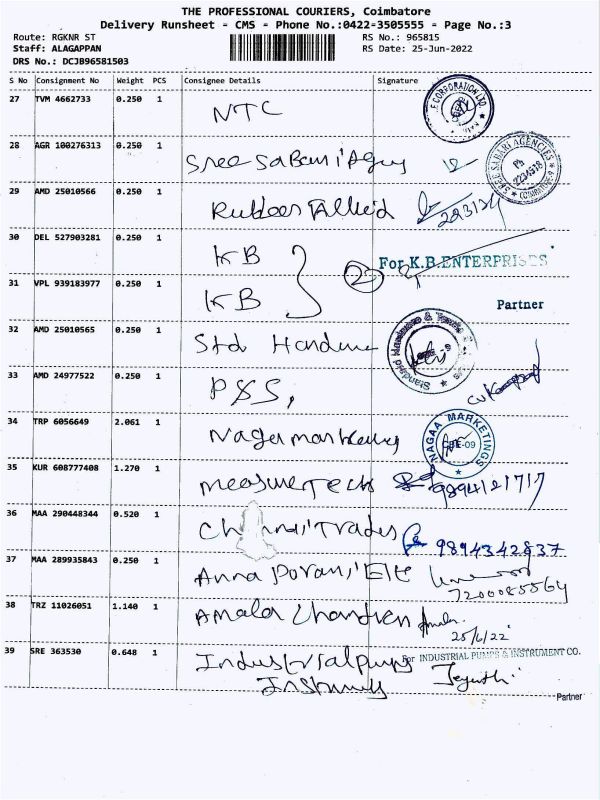 THE PROFESSIONAL COURIERS, Coimbatore
Delivery Runsheet - CMS - Phone No.:0422-3505555 - Page No.:3
Route: RGKNR ST
RS No.: 965815
Staff: ALAGAPPAN
RS Date: 25-Jun-2022
DRS No.: DCJB96581503
S No Consignment No Weight PCS Consignee Details Signature
27 TVM 4662733 0.250 1 NTC
E CORPORATION LTD.
28 AGR 100276313 0.250 1 Sree Sabari
SREE SABARI AGENCIES
COIMBATORE-9
29 AMD 25010566 0.250 1
30 DEL 527903281 0.250 1 KB
2 For K.B.ENTERPRISES
31 VPL 939183977 0.250 1 KB
Partner
32 AMD 25010565 0.250 1 Std
Standard Hardware &
33 AMD 24977522 0.250 1 PSS,
34 TRP 6056649 2.061 1 Nagaa Marketing
NAGAA MARKETINGS
CBE-09
35 KUR 608777408 1.270 1 Measure Tech 9894121717
36 MAA 290448344 0.520 1 9894342837
37 MAA 289935843 0.250 1 Anna Porani Ele
7200085564
38 TRZ 11026051 1.140 1 Amala Chandren
25/6/22
39 SRE 363530 0.648 1 Industrial pumps
For INDUSTRIAL PUMPS & INSTRUMENT CO.
Partner